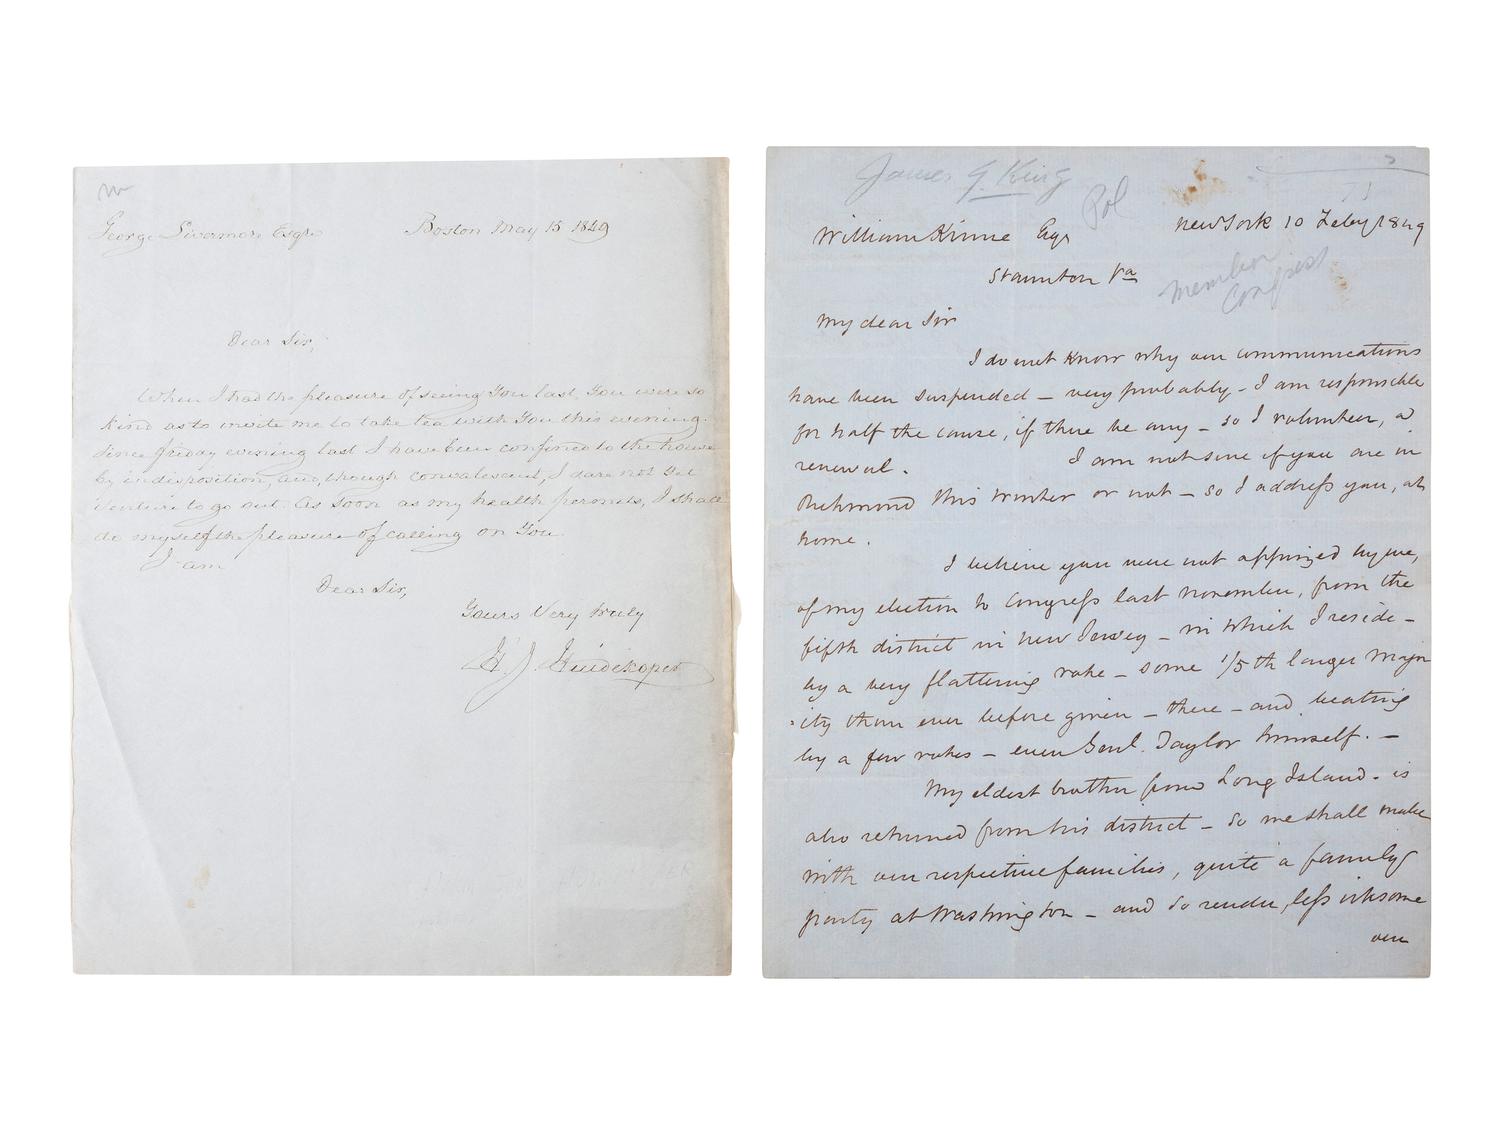 George Livermore Esqre
Boston May 15 1849
Dear Sir,
When I had the pleasure of seeing You last, You were so
kind as to invite me to take tea with You this evening.
Since friday evening last I have been confined to the house
by indisposition, and, though convalescent, I dare not yet
venture to go out. As soon as my health permits, I shall
do myself the pleasure of calling on You.
I am
Dear Sir,
Yours Very truly
H. J. Huidekoper
James G. King
Pol
William Kinne Esqr
New York 10 Feby 1849
Staunton Va
Member
Congress
My dear Sir
I do not know why our communications
have been suspended – very probably – I am responsible
for half the cause, if there be any – so I volunteer, a
renewal. I am not sure if you are in
Richmond this winter or not – so I address you, at
home.
I believe you were not apprized by me,
of my election to Congress last november, from the
fifth district in New Jersey – in which I reside –
by a very flattering vote – some 1/5th larger major
ity than ever before given – there – and beating
by a few votes – even Genl. Taylor himself. –
My eldest brother from Long Island – is
also returned from his district – so we shall make
with our respective families, quite a family
party at Washington – and so render, less irksome
our